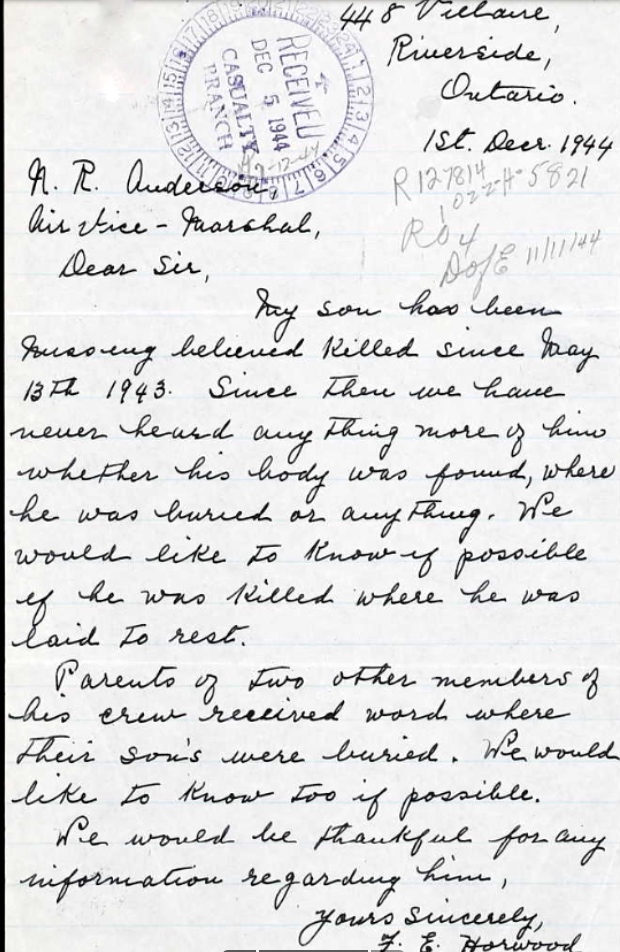 448 Villaire,
Riverside,
Ontario.
1st. Decr. 1944
RECEIVED
DEC 5 1944
CASUALTY
BRANCH
R127814
5821
R04
DofE 11/11/44
N. R. Anderson,
Air Vice-Marshal,
Dear Sir,
My son has been
missing believed killed since May
13th 1943. Since then we have
never heard any thing more of him
whether his body was found, where
he was buried or any thing. We
would like to know if possible
if he was killed where he was
laid to rest.
Parents of two other members of
his crew received word where
their son's were buried. We would
like to know too if possible.
We would be thankful for any
information regarding him,
Yours Sincerely,
F. E. Horwood